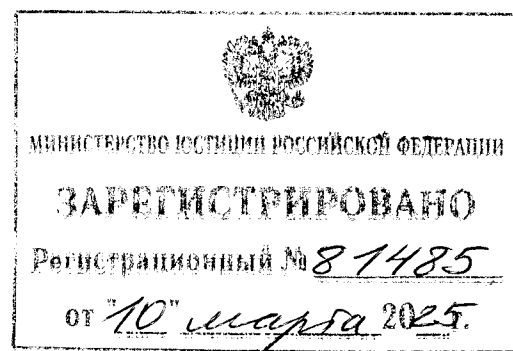 МИНИСТЕРСТВО ЮСТИЦИИ РОССИЙСКОЙ ФЕДЕРАЦИИ
ЗАРЕГИСТРИРОВАНО
Регистрационный № 81485
от "10" марта 2025г.